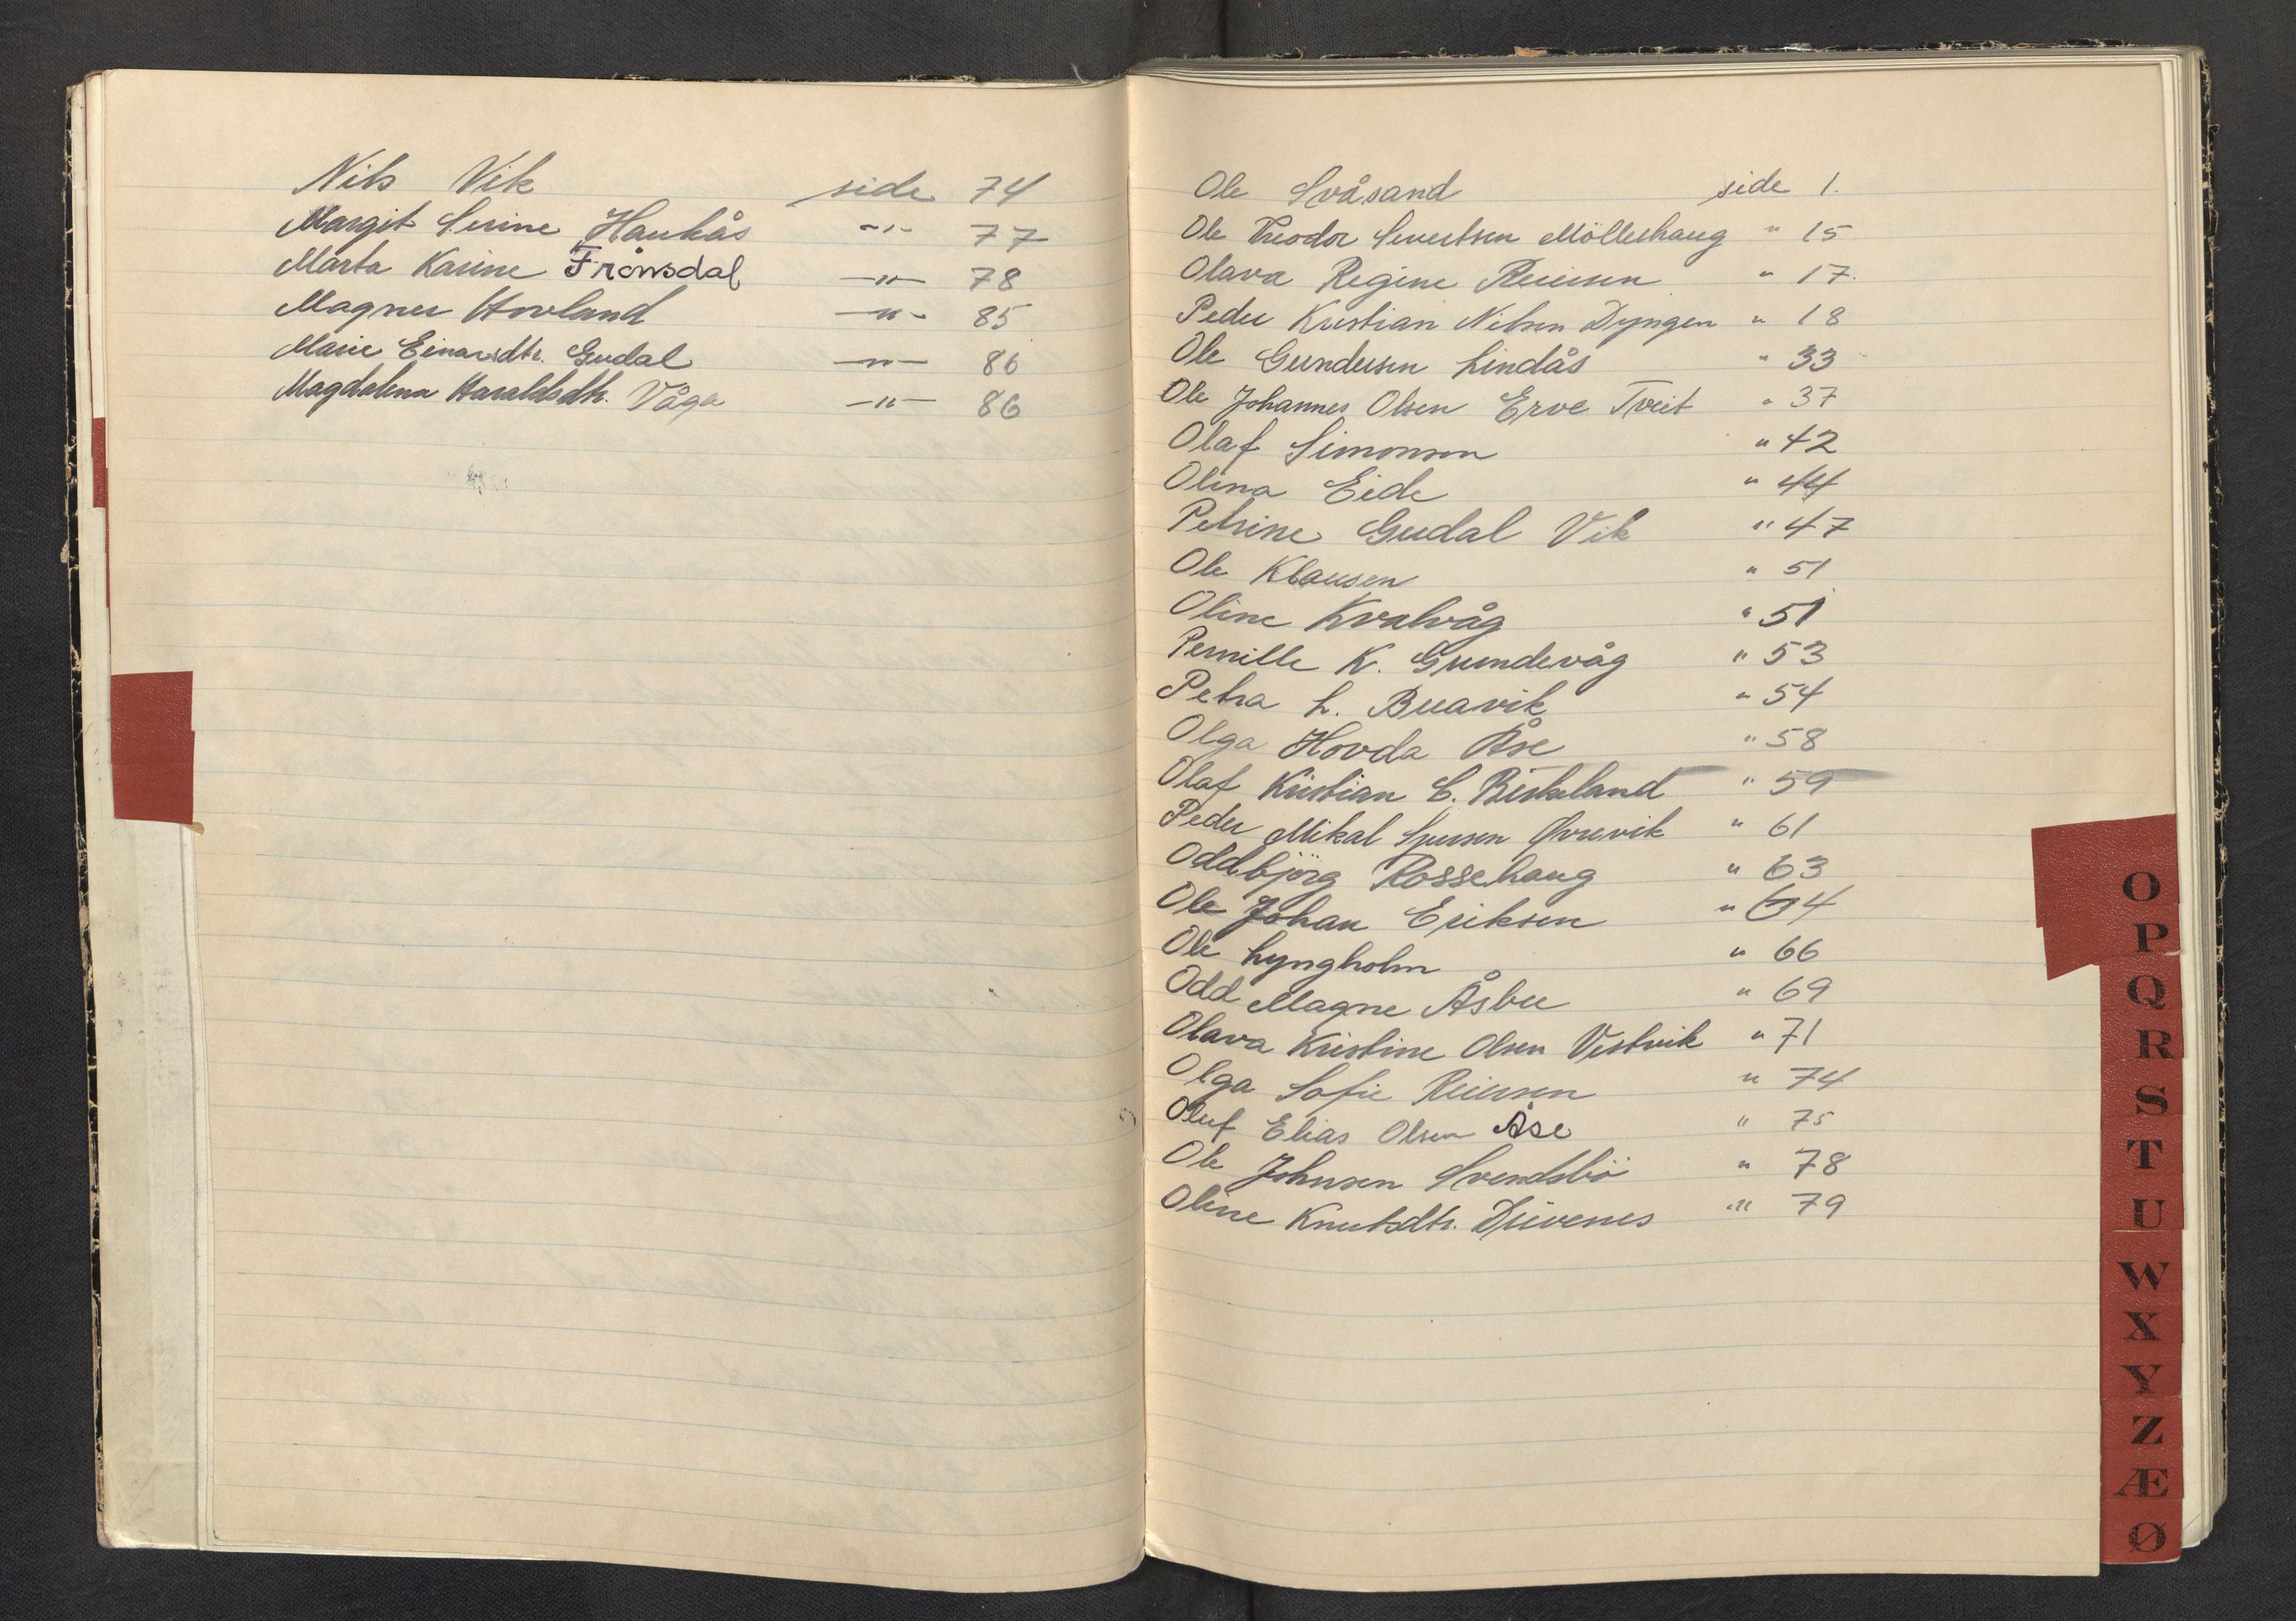 Nils Vik side 74
Margit Serine Haukås -"- 77
Marta Karine Frønsdal -"- 78
Magnus Hovland -"- 85
Marie Einarsdtr. Gudal -"- 86
Magdalena Haraldsdtr. Våga -"- 86
Ole Svåsand side 1.
Ole Theodor Severtsen Möllerhaug " 15
Olava Regine Reiersen " 17.
Peder Kristian Nilsen Dyngen " 18
Ole Gundersen Lindås " 33
Ole Johannes Olsen Erve Tveit " 37
Olaf Simonson " 42
Olina Eide " 44
Petrine Gudal Vik " 47
Ole Klausen " 51
Oline Kvalvåg " 51
Pernille K. Grundevåg " 53
Petra L. Buavik " 54
Olga Hovda Åse " 58
Olaf Kristian C. Birkeland " 59
Peder Mikal Øvrevik " 61
Oddbjörg Rossehaug " 63
Ole Johan Eriksen " 64
Ole Lyngholm " 66
Odd Magne Åsbu " 69
Olava Kristine Olsen Vestvik " 71
Olga Sofie Reiersen " 74
Oluf Elias Olsen Åse " 75
Ole Johnsen Svendsbö " 78
Oline Knutsdtr. Djuvenes " 79
O
P
Q
R
S
T
U
W
X
Y
Z
Æ
Ø